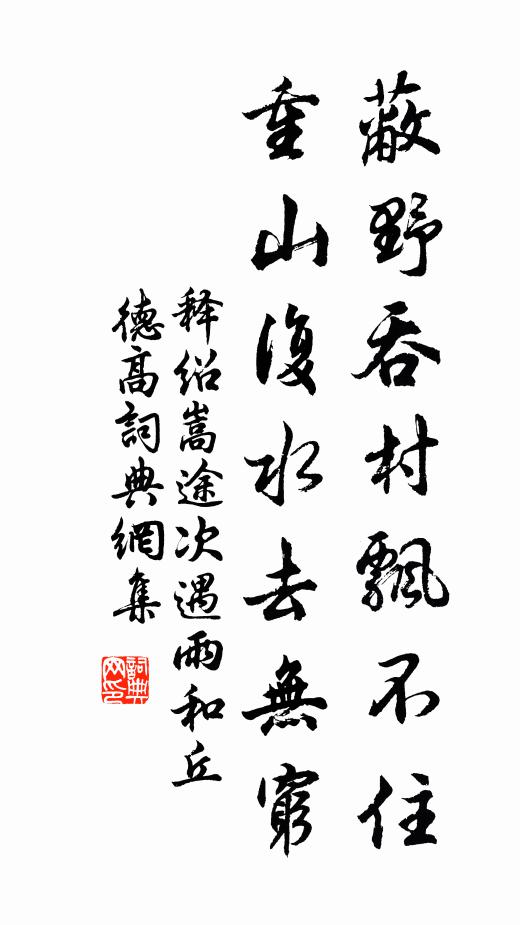 蔽野吞村飄不住
重山復水去無窮
释绍嵩途次遇雨和丘
德高詞典網集
詞典網印